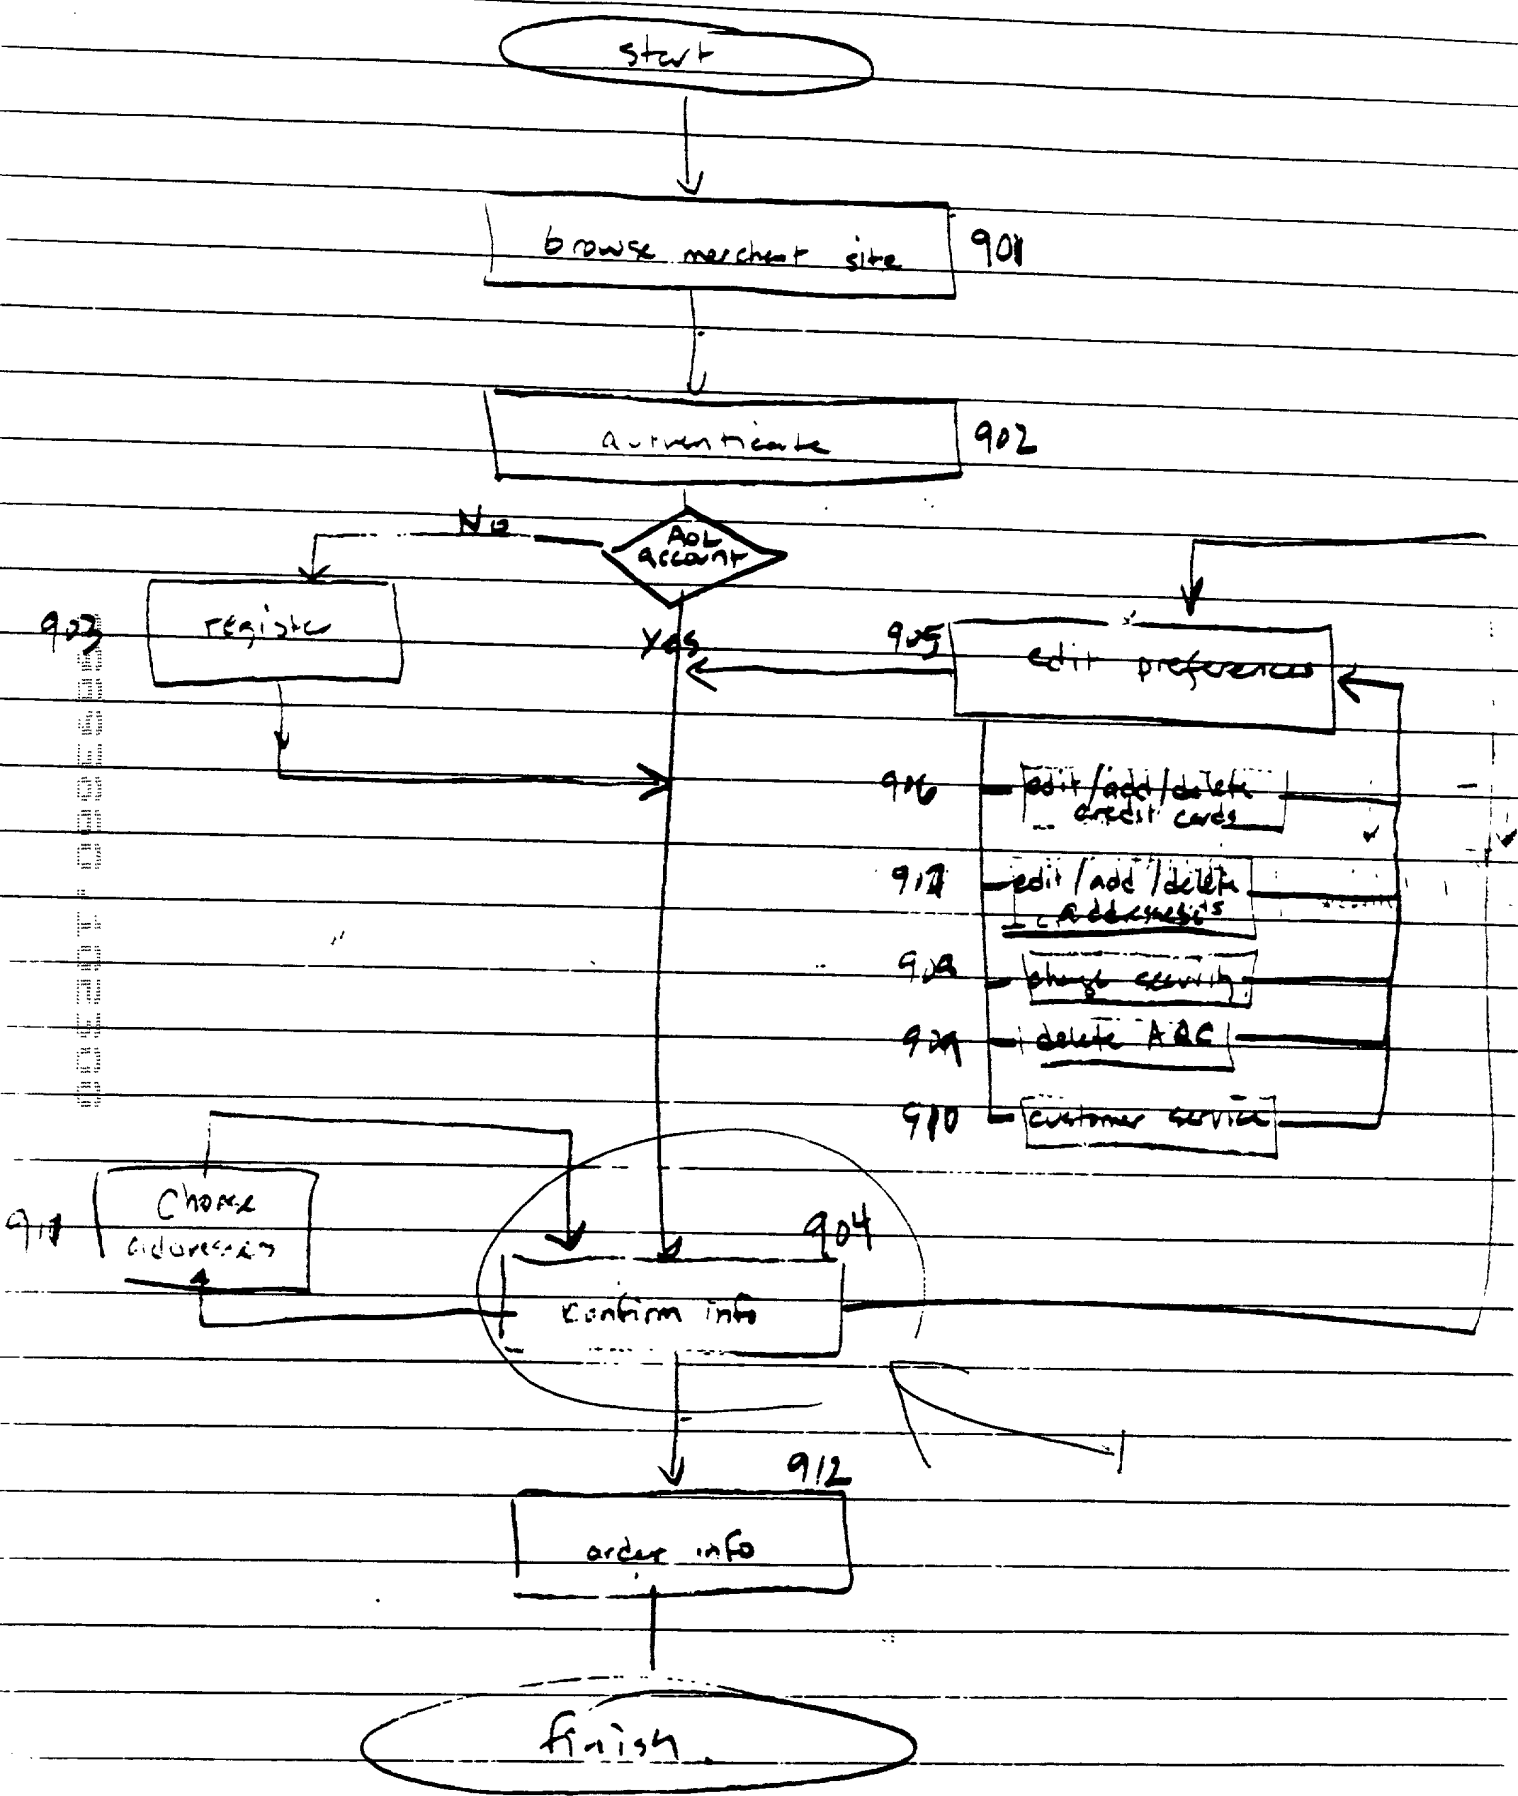 start
browse merchant site 901
authenticate 902
No
AOL
account
903 register
Yes
905 edit preferences
906 edit/add/delete
credit cards
907 edit/add/delete
908 change security
909 delete AQC
910 customer service
911 Choose
addresses
904
confirm info
912
order info
finish